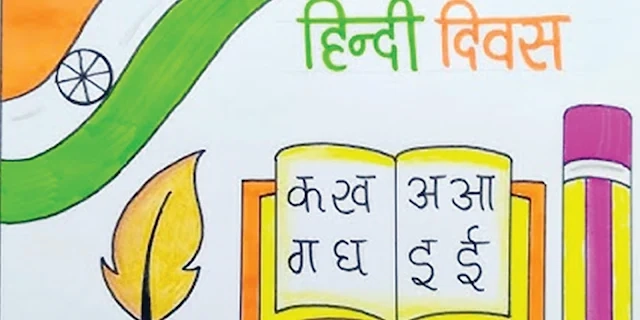 हिन्दी दिवस
क ख
ग घ
अ आ
इ ई